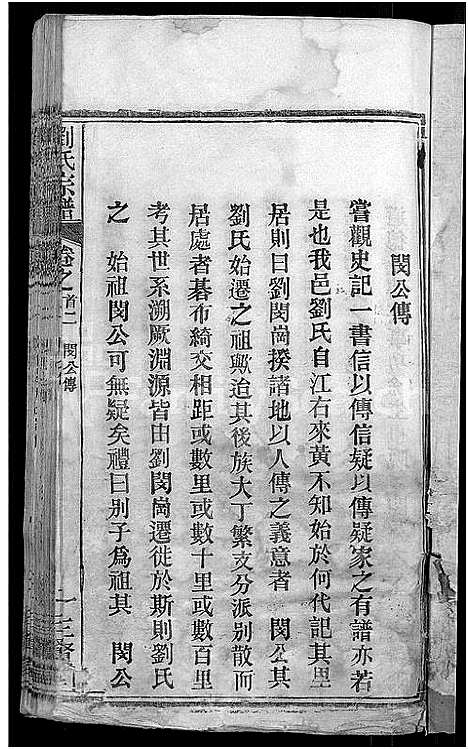 閔公傳
嘗觀史記一書信以傳信疑以傳疑家之有譜亦若
是也我邑劉氏自江右來黃不知始於何代記其里
居則曰劉閔崗揆諸地以人傳之義意者　閔公其
劉氏始遷之祖歟迨其後族大丁繁支分派別散而
居處者碁布綺交相距或數里或數十里或數百里
考其世系溯厥淵源皆由劉閔崗遷徙於斯則劉氏
之　始祖閔公可無疑矣禮曰別子爲祖其　閔公
劉氏宗譜
卷之首二　閔公傳